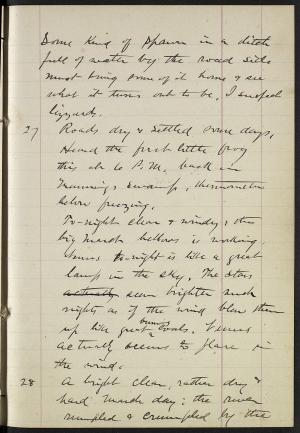 Some kind of spawn in a ditch
full of water by the road side
must bring some of it home & see
what it turns out to be. I suspect
lizzards.
27 Roads dry & settled some days.
Heard the first little frog
this eve to P.M. back in
Manning's swamp, thermometer
below freezing.
To-night clear & windy, the
big March bellows is working.
Venus to-night is like a great
lamp in the sky. The stars
actually seem brighter such
nights as if the wind blew them
up like great burning coals. Venus
actually seems to flare in
the wind.
28 A bright clear, rather dry &
hard March day; the river
rumpled & crumpled by the